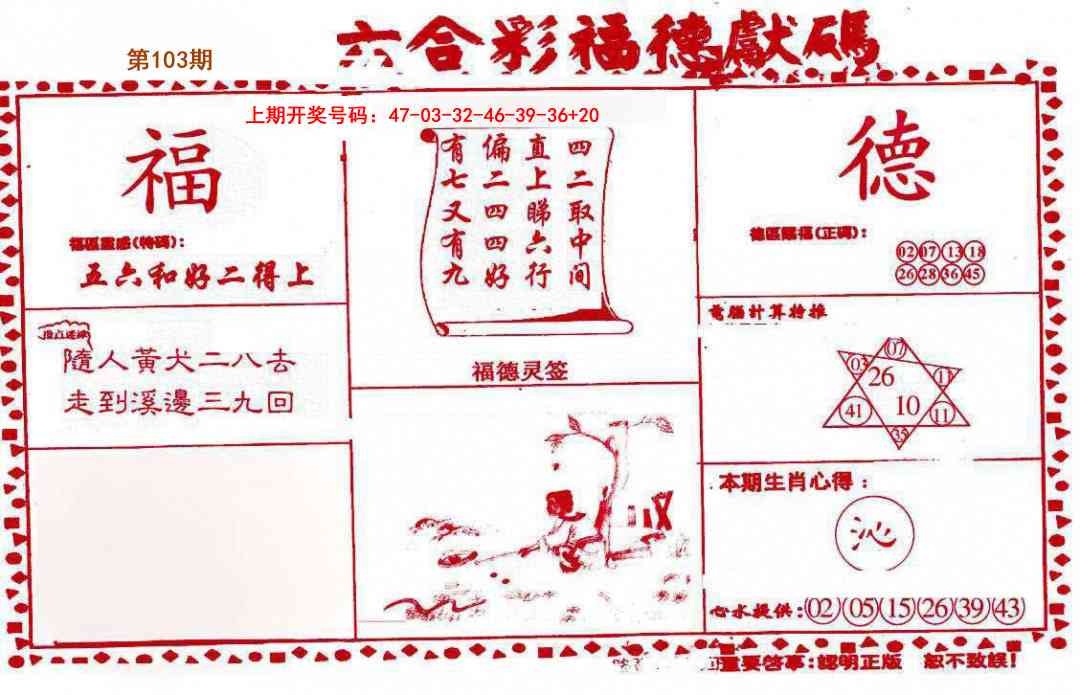 六合彩福德獻碼
第103期
上期开奖号码：47-03-32-46-39-36+20
福
福區靈感(特碼)：
五六和好二得上
隨人黃犬二八去
走到溪邊三九回
四二取中间
直上睇六行
偏二四四好
有七又有九
福德灵签
德
德區賜福(正碼)：
02 07 13 18
26 28 36 45
電腦計算特推
07
03 26 11
41 10 11
35
本期生肖心得：
沁
心水提供：02 05 15 26 39 43
重要啓事：認明正版 恕不致誤！